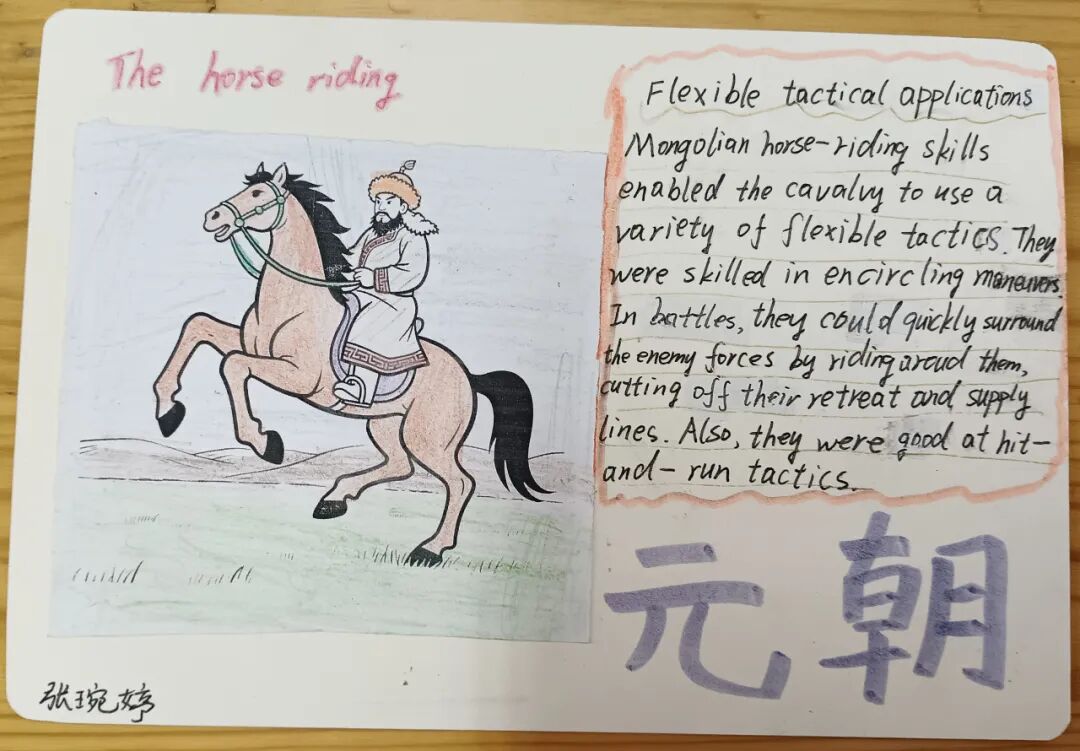 The horse riding
Flexible tactical applications
Mongolian horse-riding skills
enabled the cavalvy to use a
variety of flexible tactics. They
were skilled in encircling maneuvers.
In battles, they could quickly surround
the enemy forces by riding aroud them,
cutting off their retreat and supply
lines. Also, they were good at hit-
and-run tactics.
元朝
张琬婷